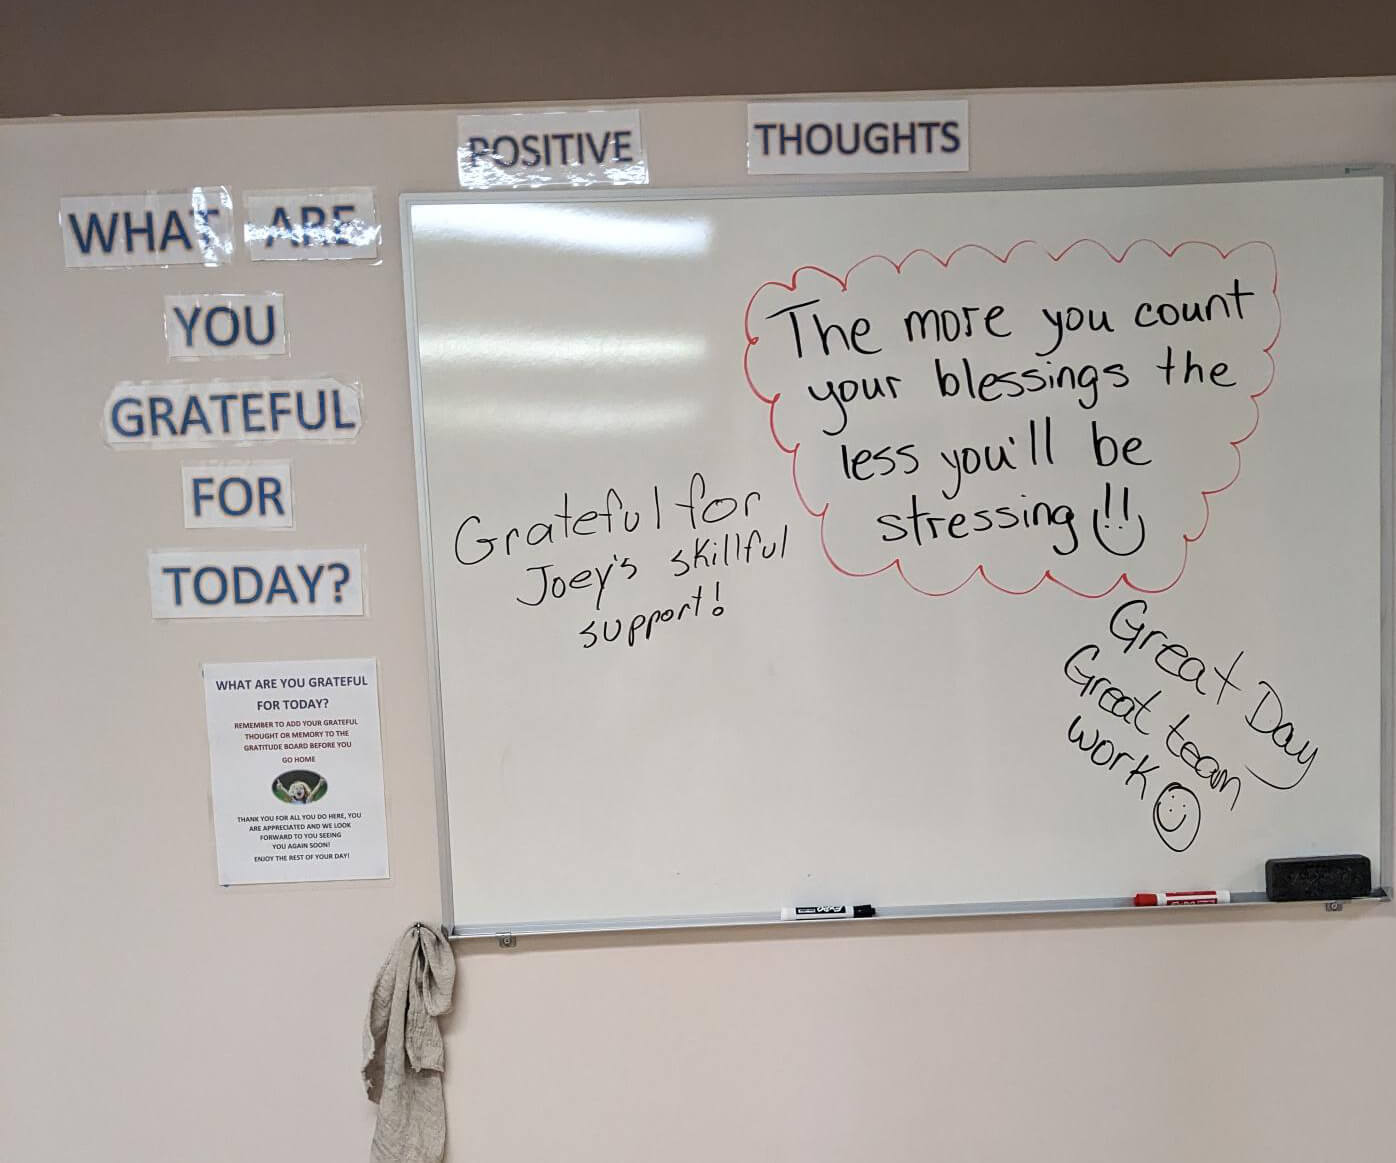 POSITIVE THOUGHTS
WHAT ARE
YOU
GRATEFUL
FOR
TODAY?
WHAT ARE YOU GRATEFUL
FOR TODAY?
REMEMBER TO ADD YOUR GRATEFUL
THOUGHT OR MEMORY TO THE
GRATITUDE BOARD BEFORE YOU
GO HOME
THANK YOU FOR ALL YOU DO HERE, YOU
ARE APPRECIATED AND WE LOOK
FORWARD TO YOU SEEING
YOU AGAIN SOON!
ENJOY THE REST OF YOUR DAY!
The more you count
your blessings the
less you'll be
stressing!!
Grateful for
Joey's skillful
support!
Great Day
Great team
work
EXPO